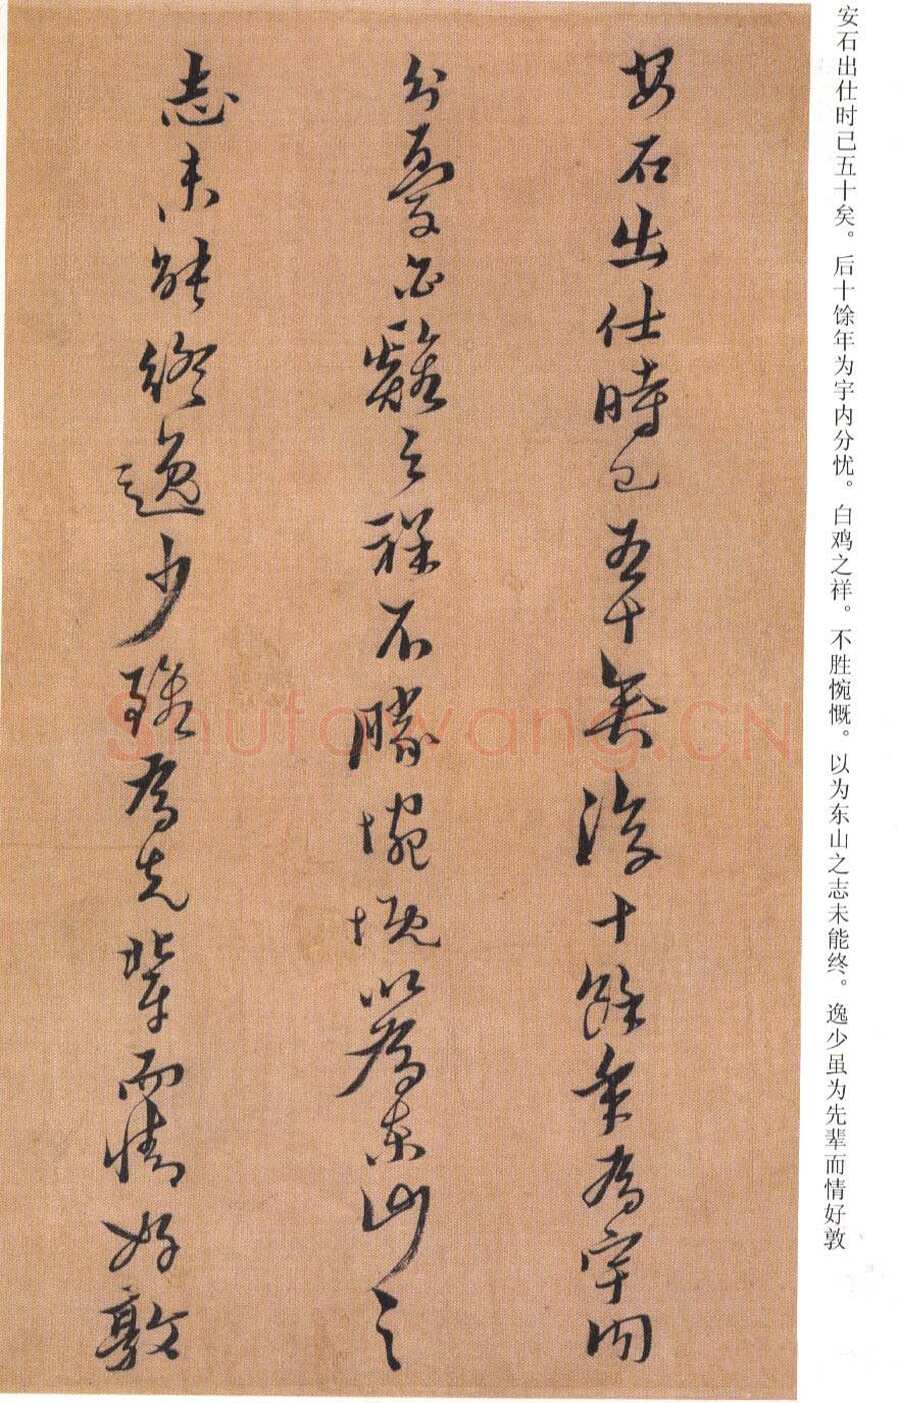 安石出仕时已五十矣。后十馀年为宇内分忧。白鸡之祥。不胜惋慨。以为东山之志未能终。逸少虽为先辈而情好敦
安石出仕時已五十矣後十餘年為宇內
分憂白鷄之祥不勝惋慨以為東山之
志未能終逸少雖為先輩而情好敦
Shufawang.CN